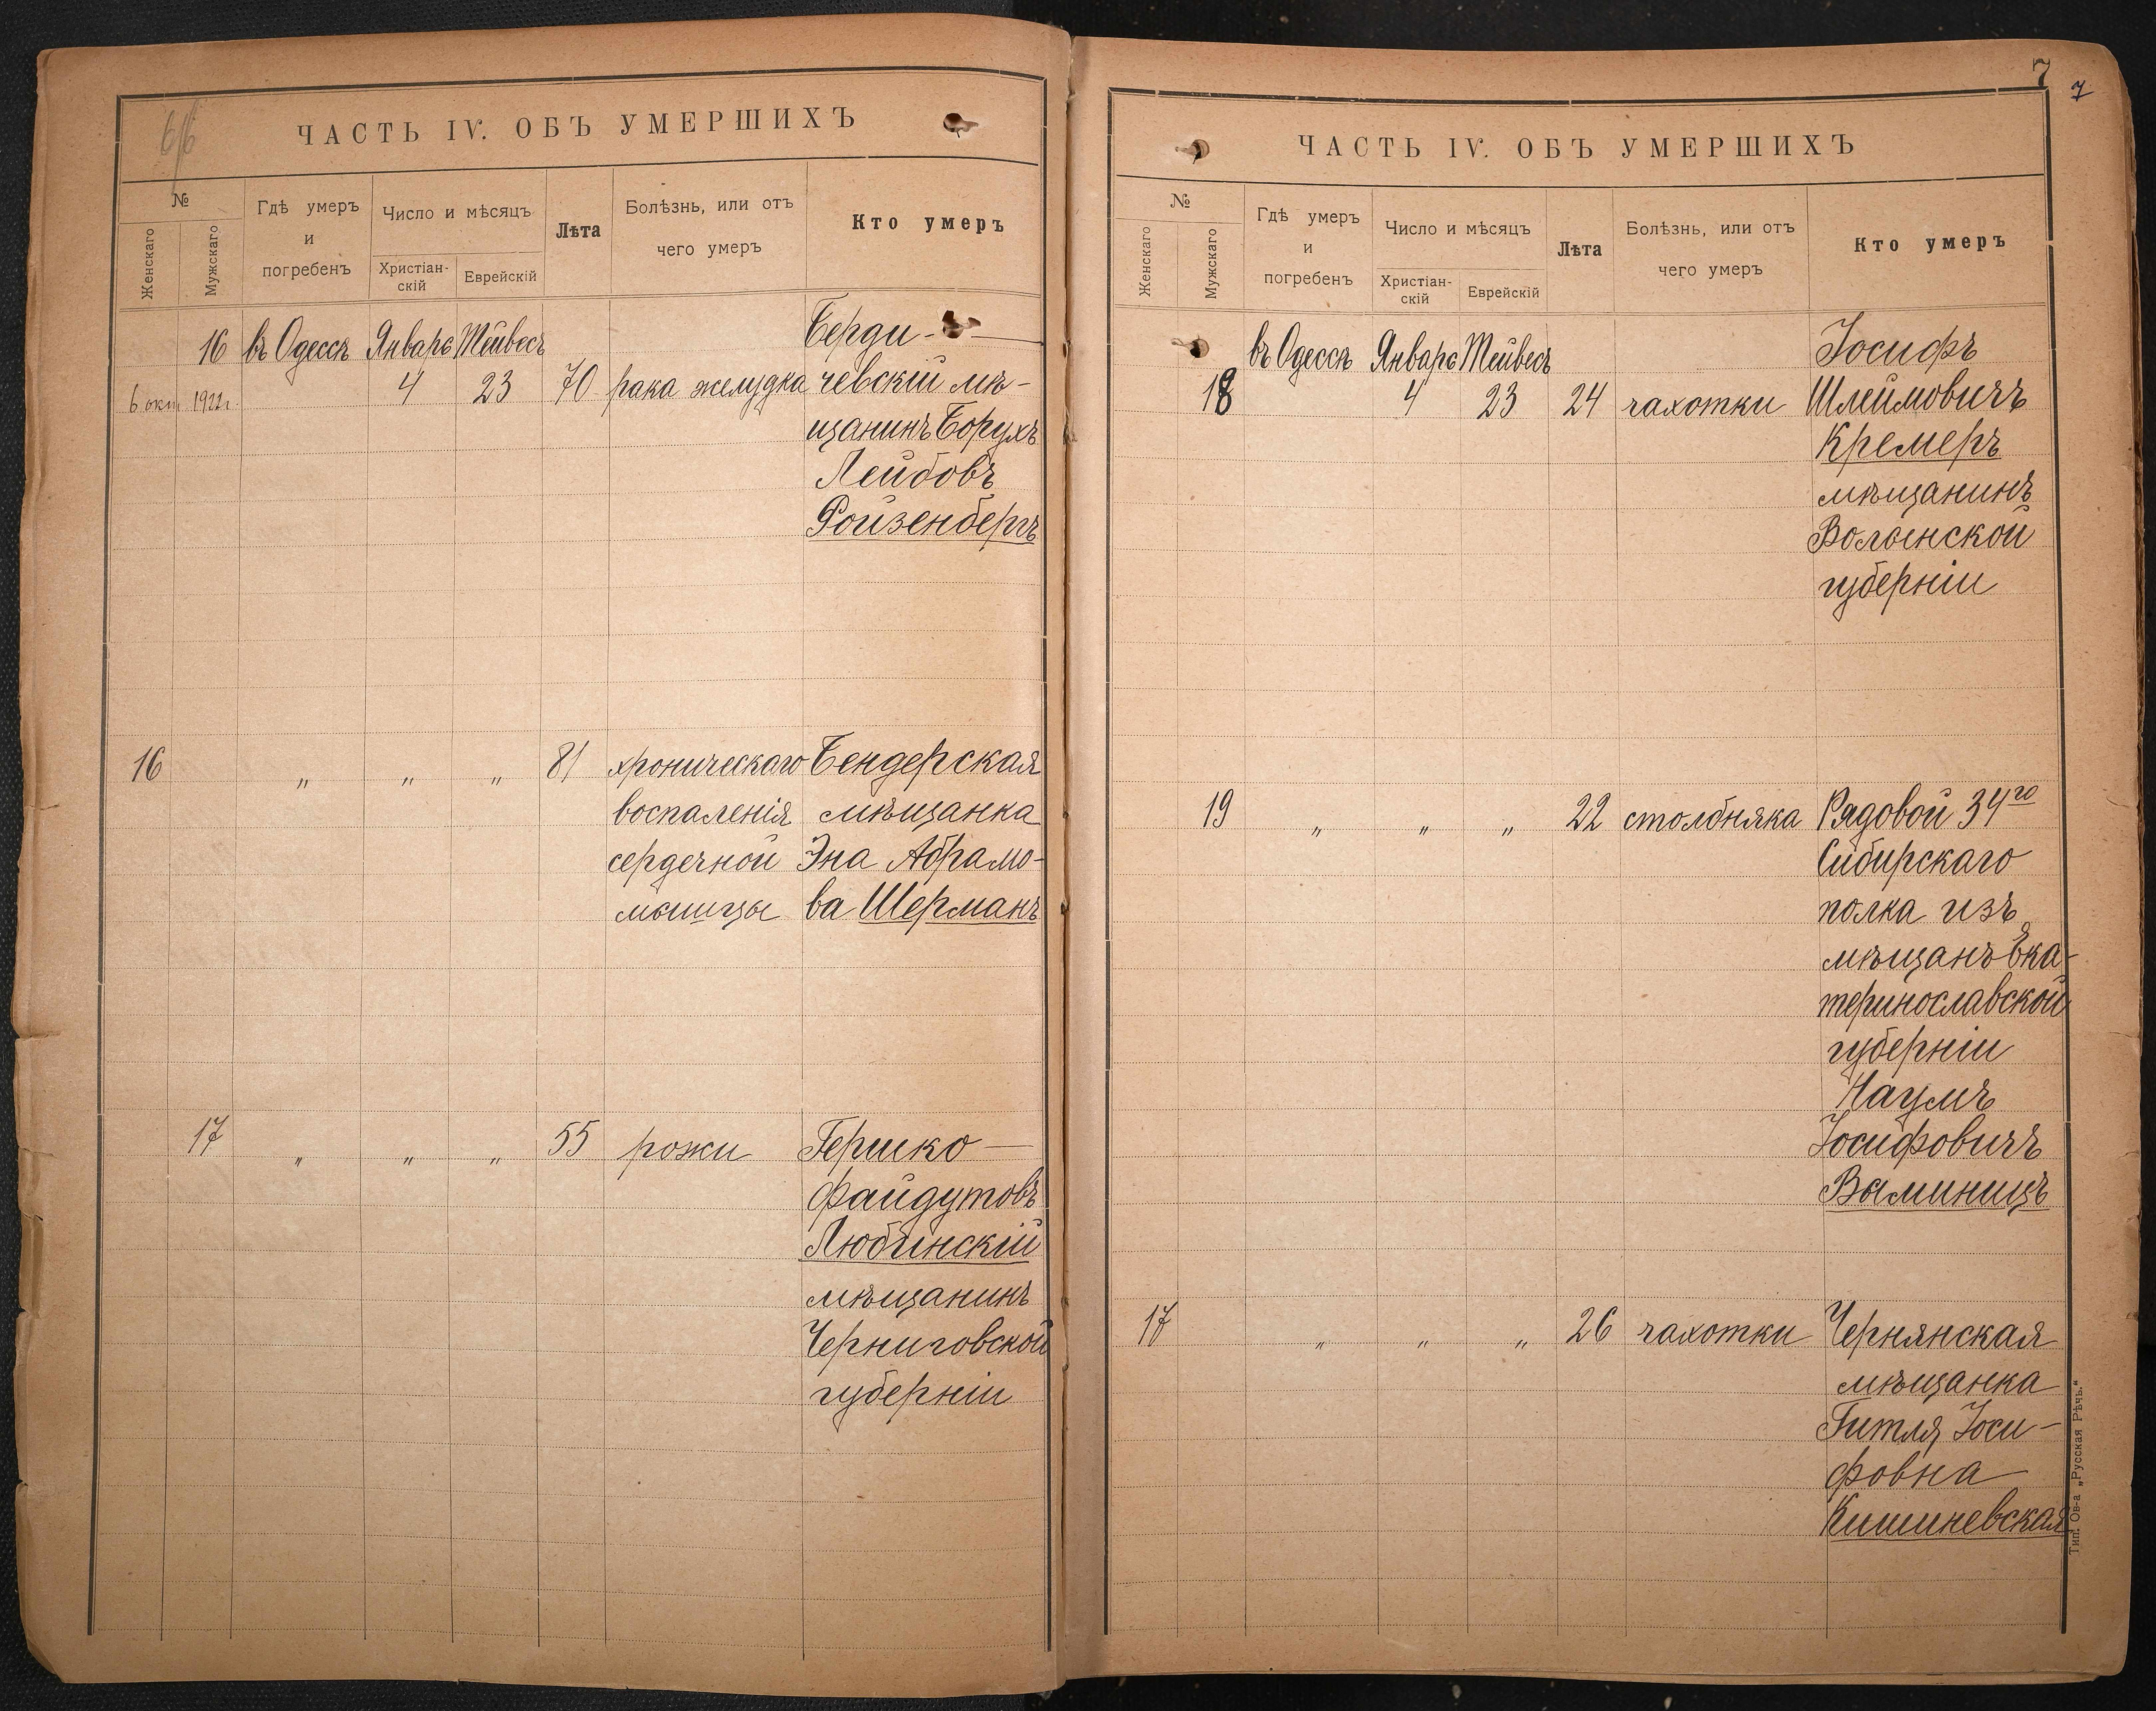 6/6
ЧАСТЬ IV. ОБЪ УМЕРШИХЪ
№
Женскаго
Мужскаго
Гдѣ умеръ
и
погребенъ
Число и мѣсяцъ
Христіан-
скій
Еврейскій
Лѣта
Болѣзнь, или отъ
чего умеръ
Кто умеръ
16 въ Одессѣ Январь Тейвесъ Берди-
6 окт 1922 г. 4 23 70 рака желудка чевскій мѣ-
щанинъ Борухъ
Лейбовъ
Ройзенбергъ
16 „ „ „ 81 хроническаго Бендерская
воспаленія мѣщанка
сердечной Эна Абрамо-
мышцы ва Шерманъ
17 „ „ „ 55 рожи Гершко
Файдутовъ
Любинскій
мѣщанинъ
Черниговской
губерніи
7 7
ЧАСТЬ IV. ОБЪ УМЕРШИХЪ
№
Женскаго
Мужскаго
Гдѣ умеръ
и
погребенъ
Число и мѣсяцъ
Христіан-
скій
Еврейскій
Лѣта
Болѣзнь, или отъ
чего умеръ
Кто умеръ
въ Одессѣ Январь Тейвесъ Іосифъ
18 4 23 24 чахотки Шлеймовичъ
Кремеръ
мѣщанинъ
Волынской
губерніи
19 „ „ „ 22 столбняка Рядовой 34го
Сибирскаго
полка изъ
мѣщанъ Ека-
теринославской
губерніи
Наумъ
Іосифовичъ
Выминицъ
17 „ „ „ 26 чахотки Чернянская
мѣщанка
Гитля Іоси-
фовна
Кишиневская
Тип. Ов-а „Русская Рѣчь.“